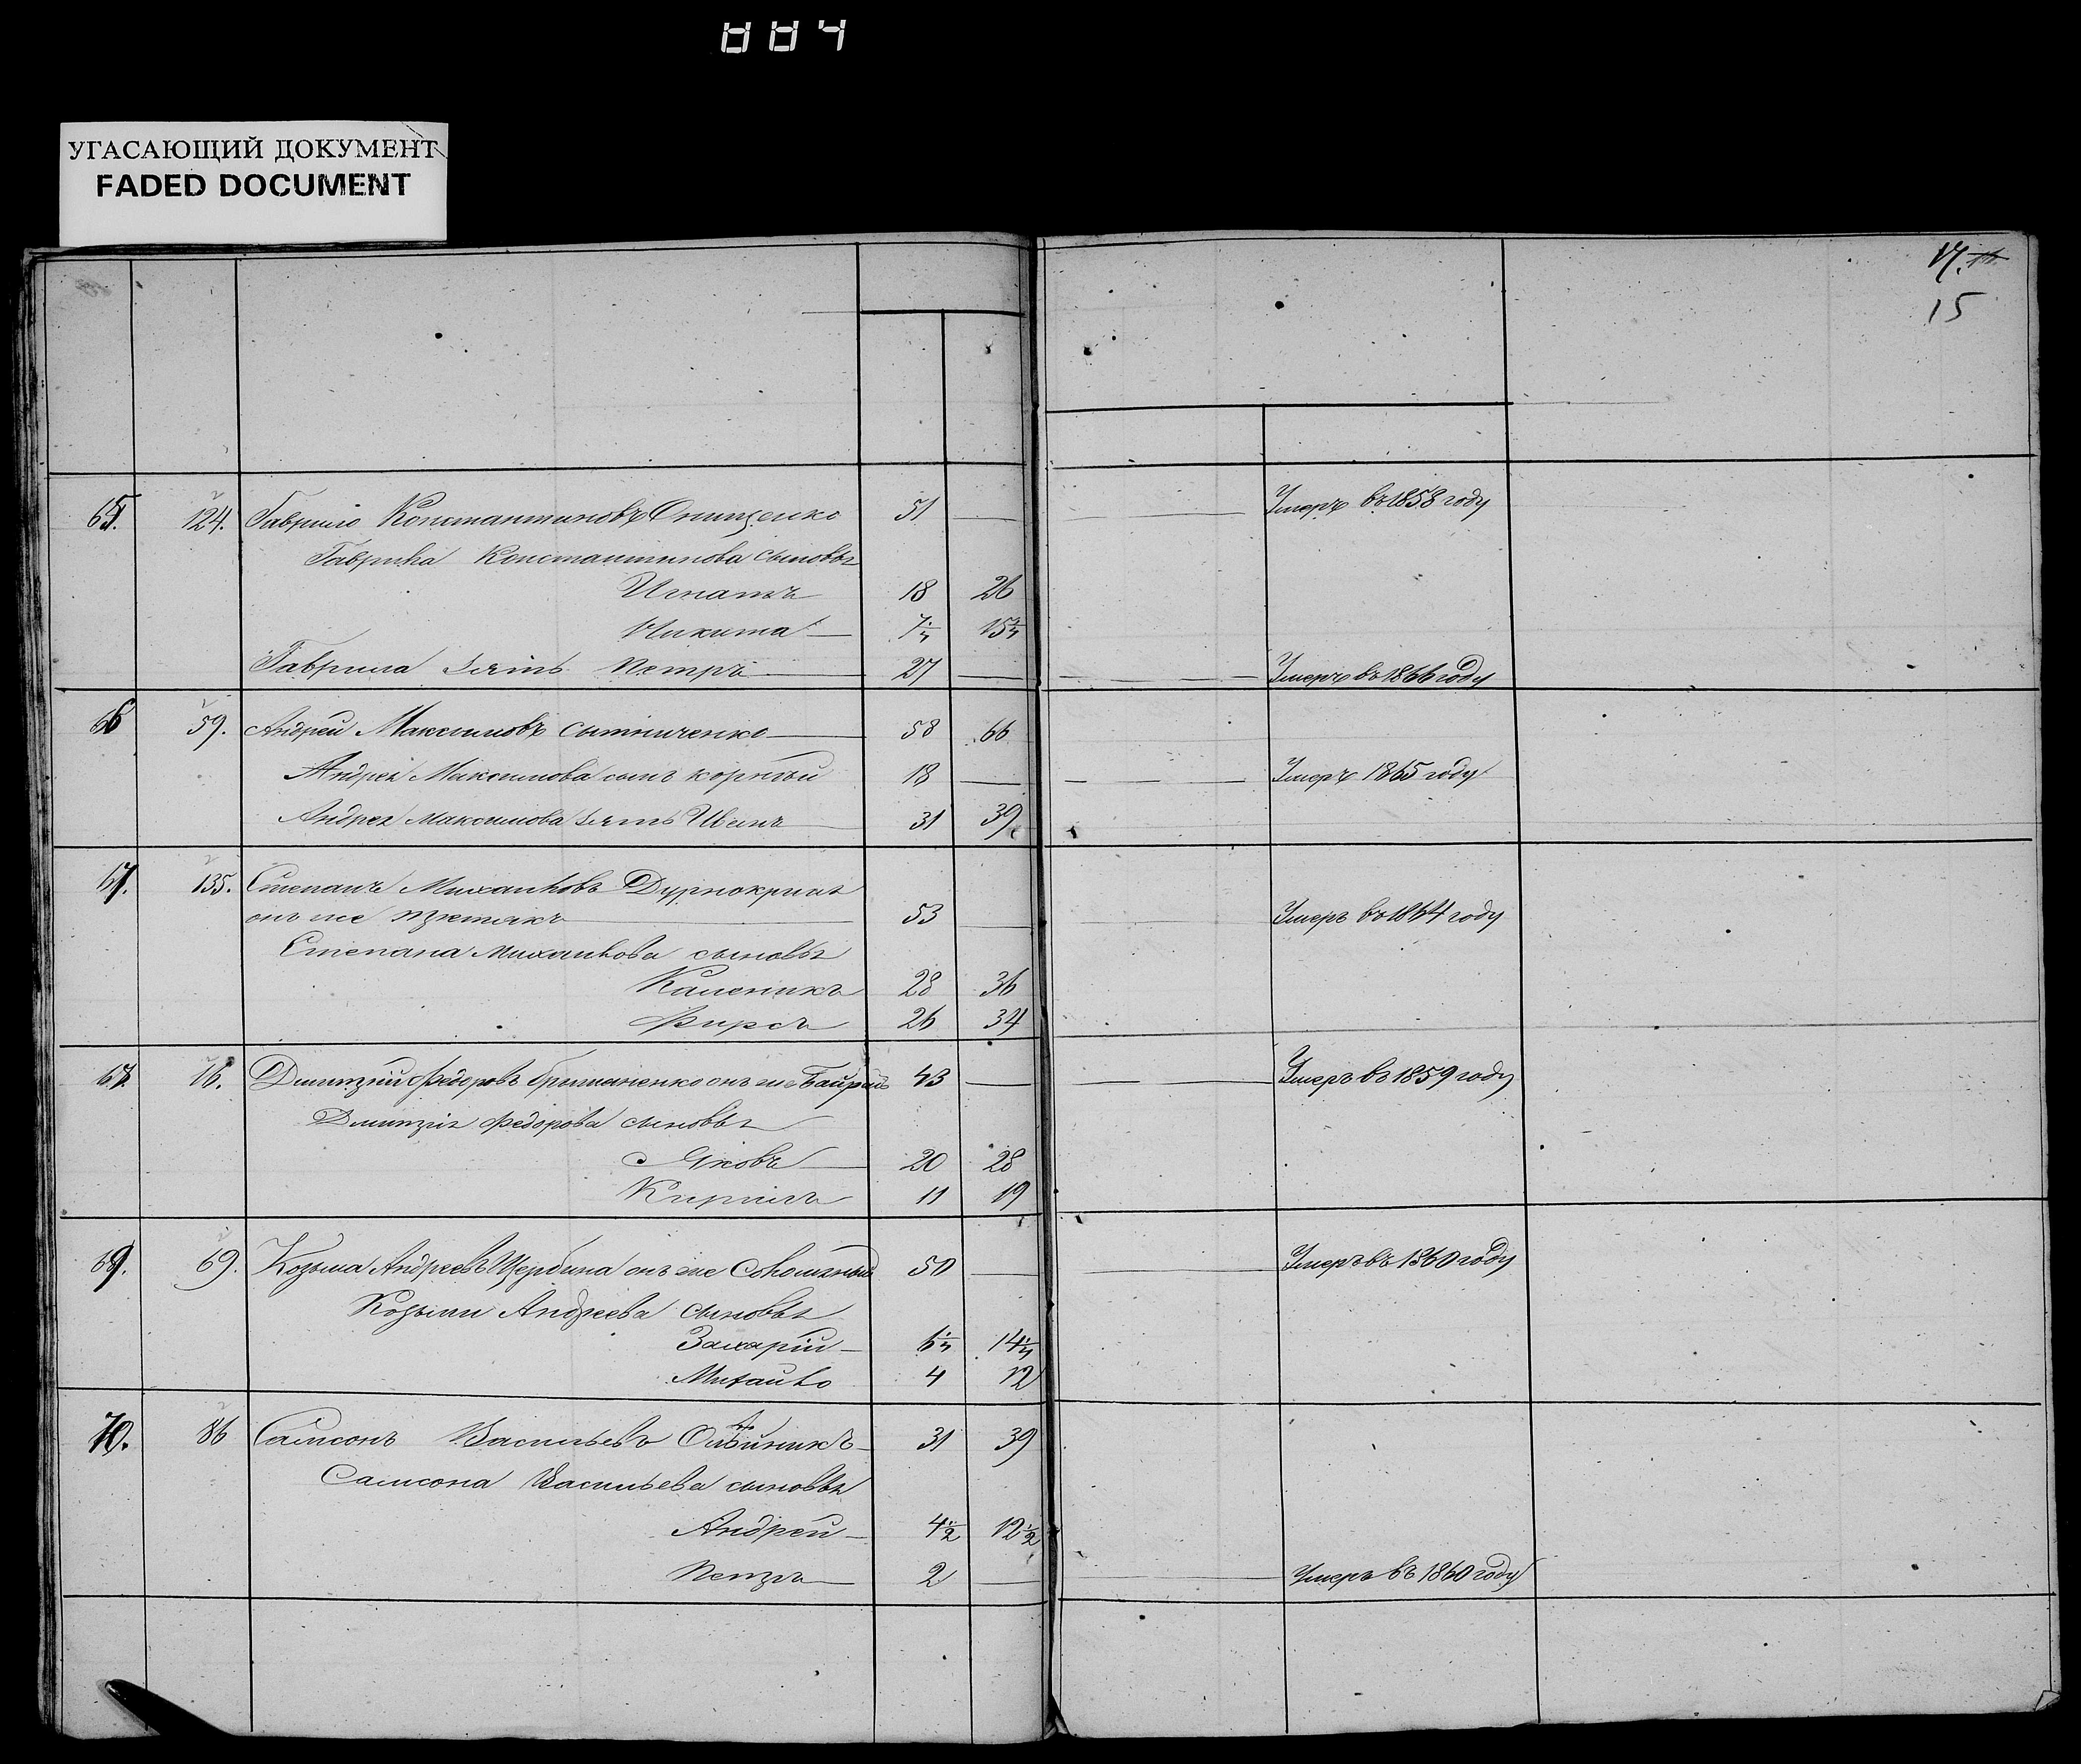 004
УГАСАЮЩИЙ ДОКУМЕНТ
FADED DOCUMENT
17.
15
65. 124. Гаврило Константиновъ Онищенко 51 — — Умеръ въ 1858 году
Гаврила Константинова сыновья
Игнатъ 18 26
Никита — 7½ 15½
Гаврила зять Петръ — 27 — — Умеръ въ 1866 году
66 59. Андрей Максимовъ Сытниченко — 58 66
Андрея Максимова сынъ Корнѣй 18 — — Умеръ 1865 году
Андрея Максимова зять Иванъ 31 39
67. 135. Степанъ Михайловъ
онъ же 53 — Умеръ въ 1864 году
Степана Михайлова сыновья
Каленикъ 28 36
Фирсъ 26 34
76. Дмитрій Федоровъ онъ же 43 — — Умеръ въ 1859 году
Дмитрія Федорова сыновья
Яковъ — 20 28
Кирилъ 11 19
69. 69. Козьма Андреевъ Щербина онъ же 50 — — Умеръ въ 1860 году
Козьмы Андреева сыновья
Захарій — 6½ 14½
Михайло 4 12
70. 86 Самсонъ Васильевъ Олѣйникъ — 31 39
Самсона Васильева сыновья
Андрей — 4½ 12½
Петръ — 2 — — Умеръ въ 1860 году